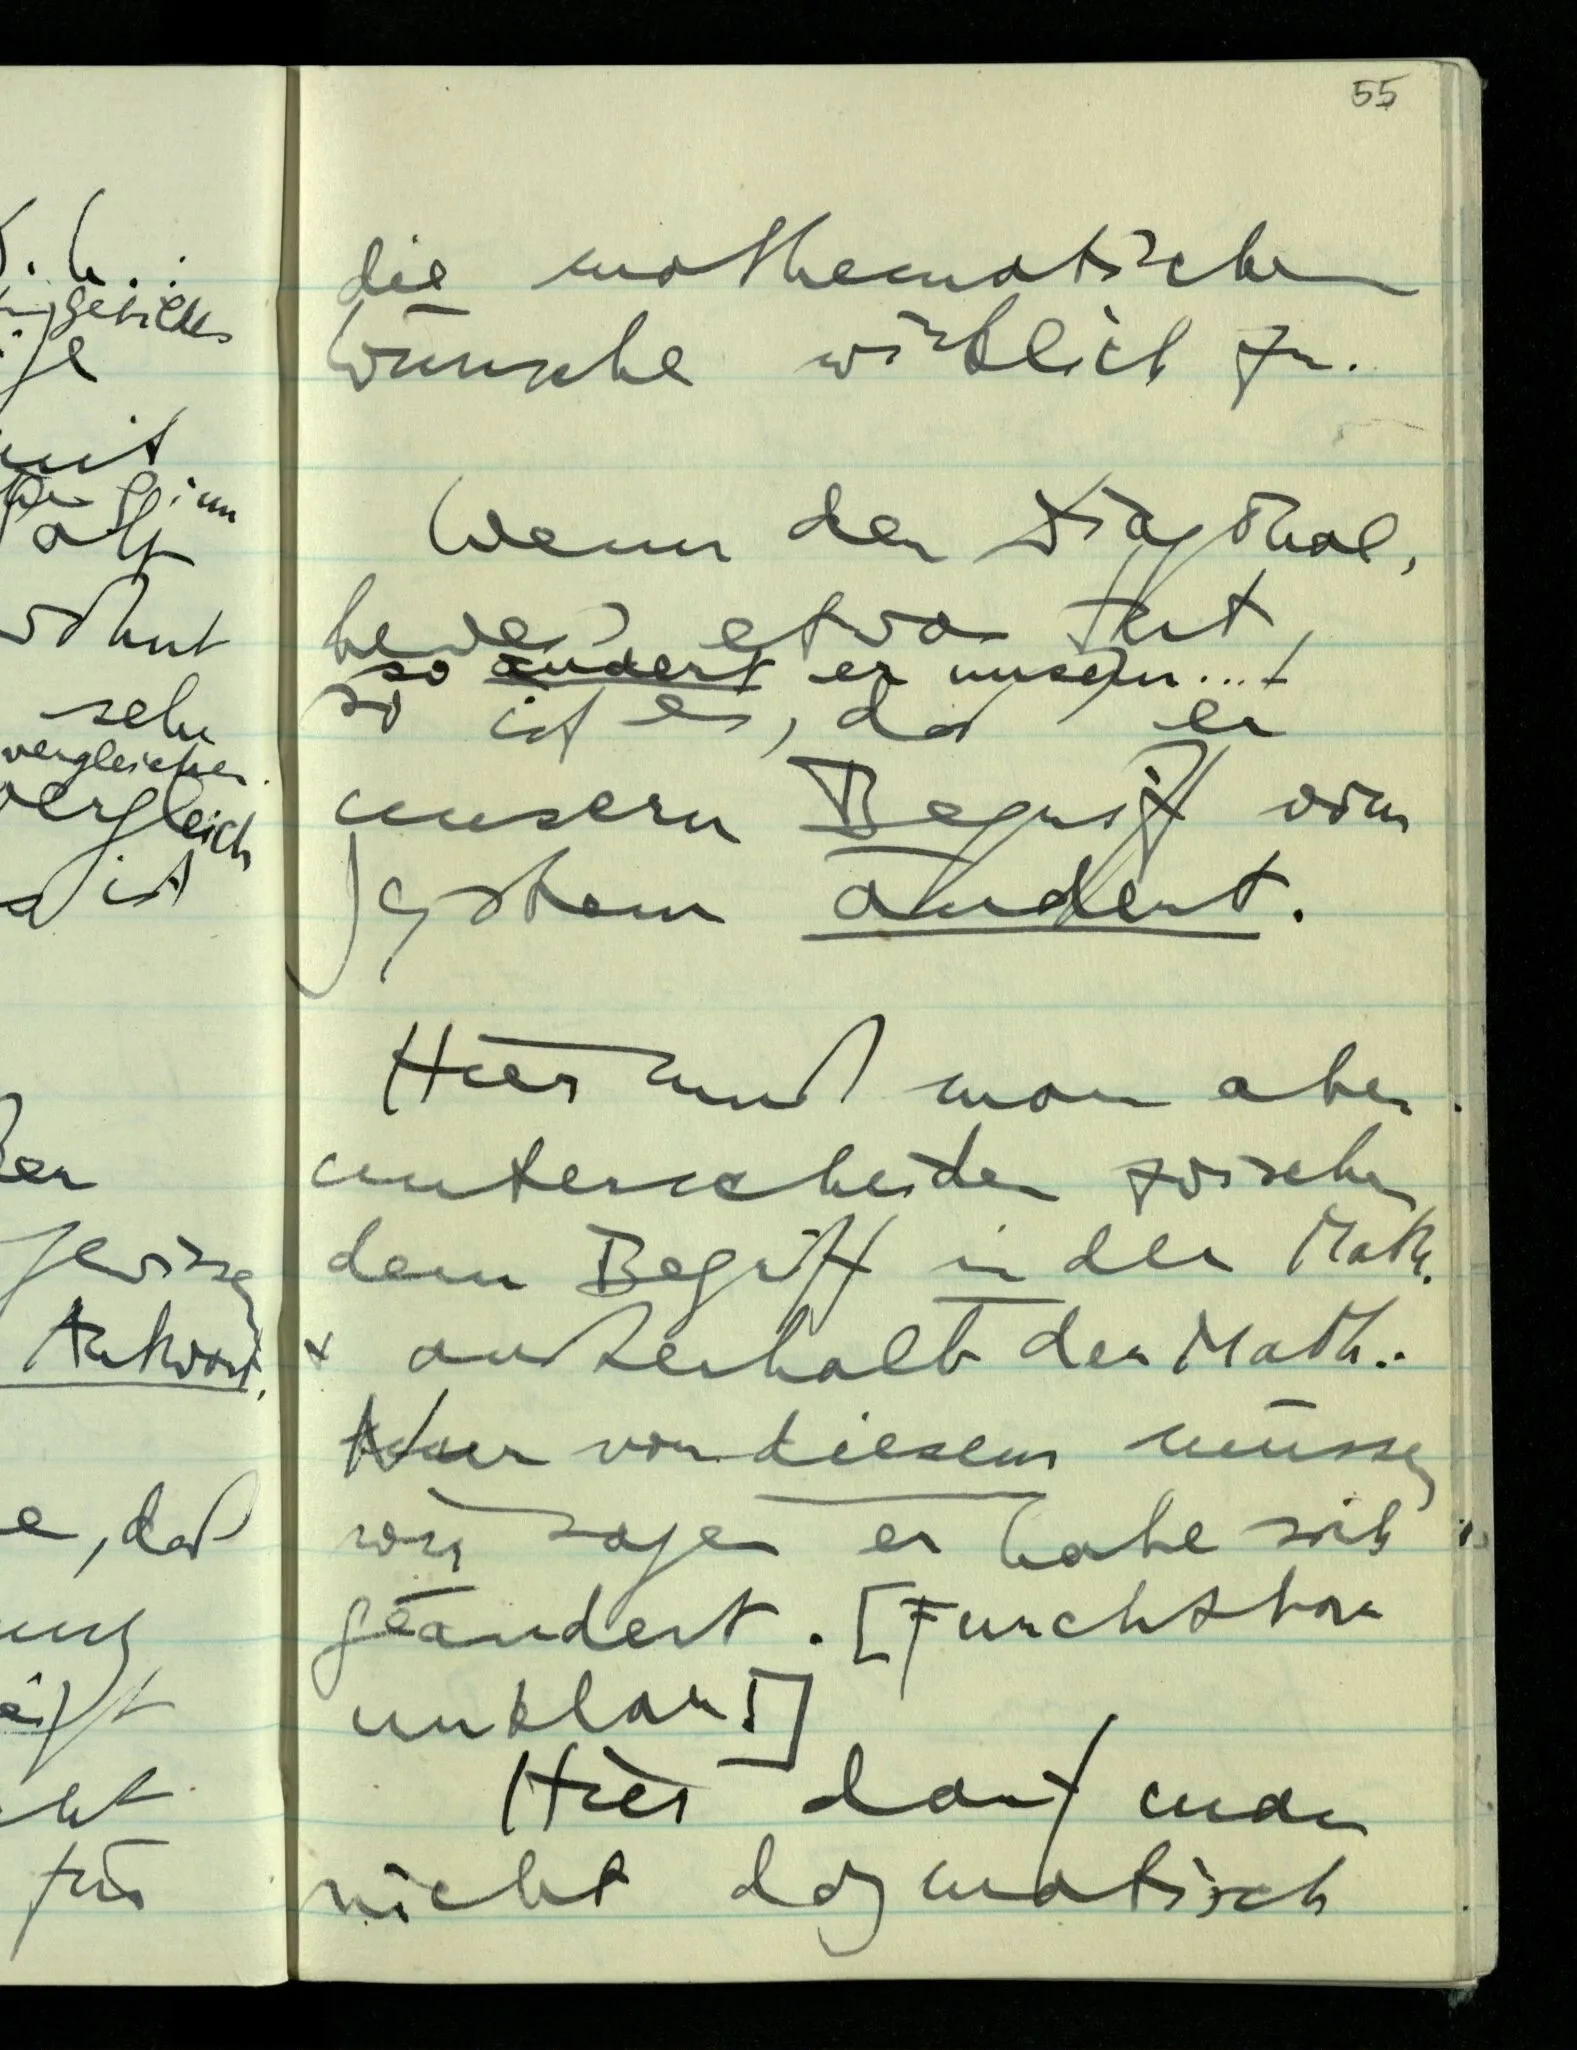 55
d. h.:
gebildes
mit
wohnt
sehr
vergleichen
vergleich
ist
gewissen
Antwort.
e, daß
für
die mathematischen
Wünsche wirklich zu.
Wenn der Diagonal,
beweis etwas tut,
so ändert er unsern...!
so ist es, daß er
unsern Begriff vom
System ändert.
Hier muß man aber
unterscheiden zwischen
dem Begriff in der Math.
& außerhalb der Math..
Nur von diesem müssen
wir sagen er habe sich
geändert. [Furchtbar
unklar!]
Hier darf man
nicht dogmatisch